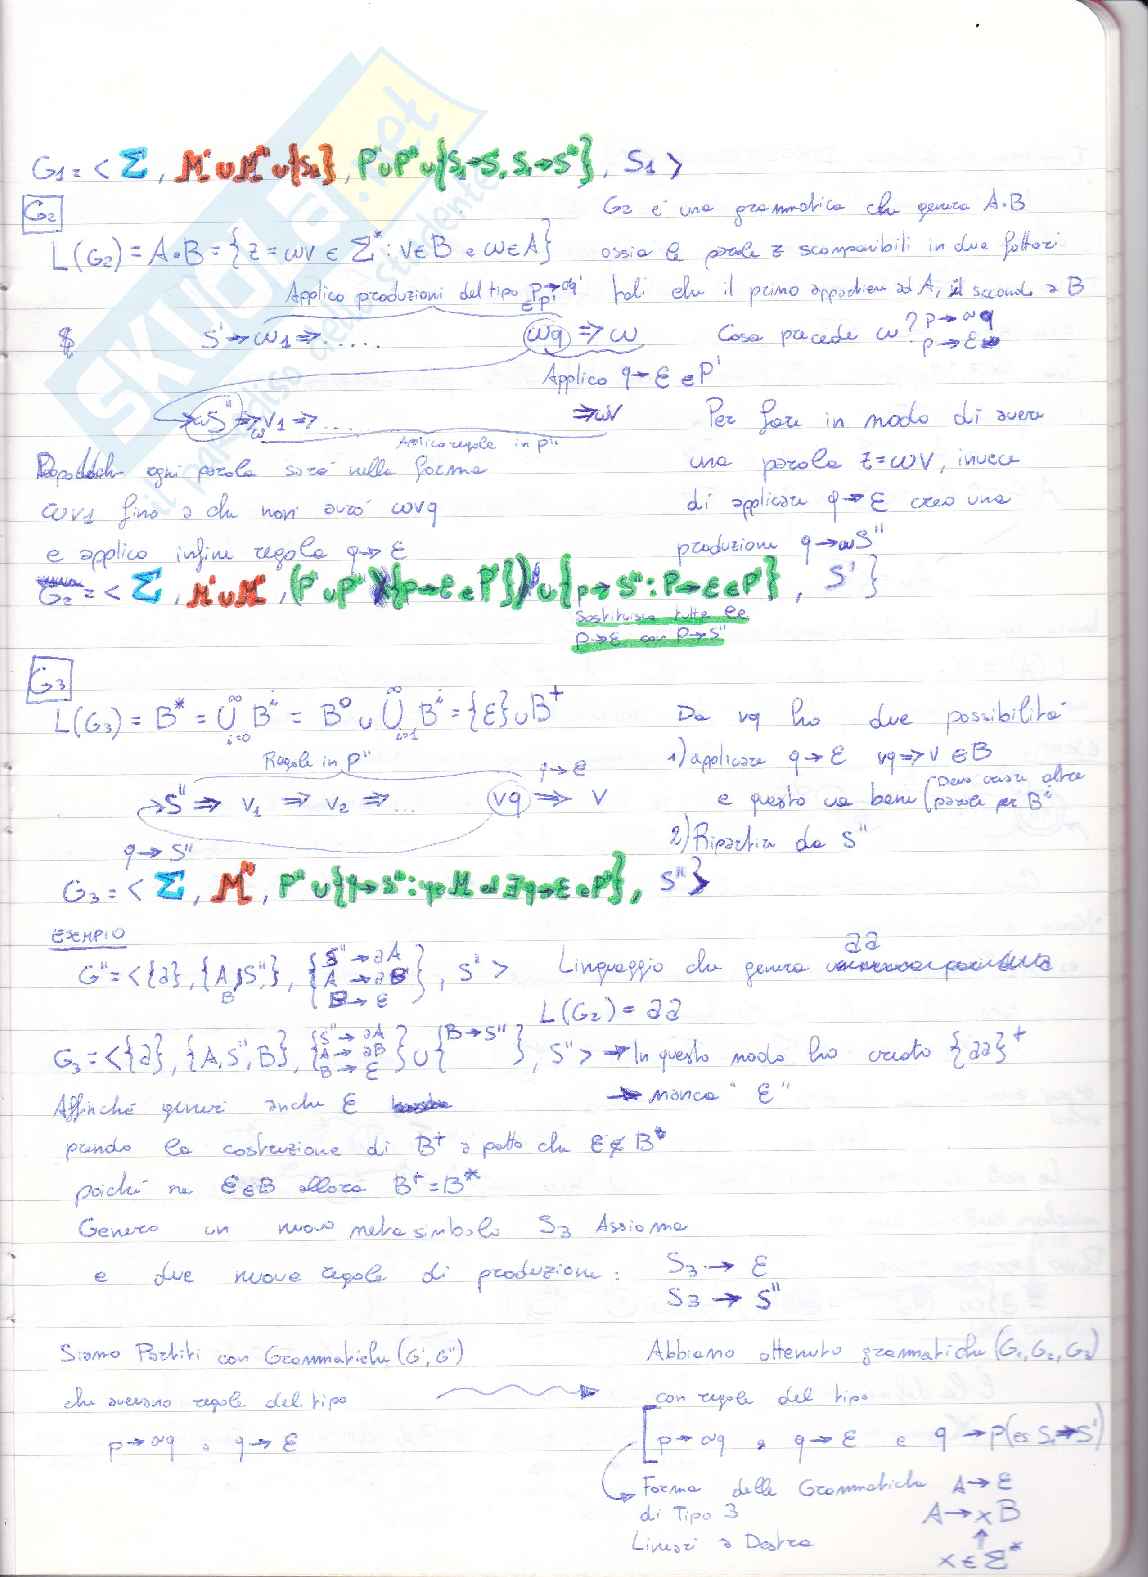 G1 = < Σ, M' ∪ M'' ∪ {S1}, P' ∪ P'' ∪ {S1→S', S1→S''}, S1 >
G2
G2 è una grammatica che genera A·B
L(G2) = A•B = {z = ωv ∈ Σ* : v∈B e ω∈A}
ossia le parole z scomponibili in due fattori
tali che il primo appartiene ad A, il secondo a B
Applico produzioni del tipo p→σq ∈ P'
$ S' → ω1 ⇒ ..... ωq ⇒ ω
Cosa precede ω? p→ωq
p→ε
Applico q→ε ∈ P'
→ωS'' ⇒ ωv1 ⇒ ... ⇒ωv
Applico regole in P''
Per fare in modo di avere
una parola z = ωv, invece
di applicare q→ε creo una
produzione q→ωS''
ogni parola sarà nella forma
ωv1 fino a che non avrò ωvq
e applico infine regola q→ε
G2 = < Σ, M' ∪ M'', (P' ∪ P'' \ {p→ε ∈ P'}) ∪ {p→S'' : p→ε ∈ P'}, S' }
Sostituisco tutte le
p→ε con p→S''
G3
L(G3) = B* = ∞⋃i=0 Bⁱ = B⁰ ∪ ∞⋃i=1 Bⁱ = {ε} ∪ B⁺
Da vq ho due possibilità
1) applicare q→ε vq⇒v ∈B
e questo va bene (Devo creare altre
parole per Bⁱ
2) Ripartire da S''
Regole in P''
q→ε
→S'' ⇒ v1 ⇒ v2 ⇒ ... vq ⇒ v
q→S''
G3 = < Σ, M'', P'' ∪ {q→S'' : q∈M ed ∃q→ε∈P''}, S'' >
ESEMPIO
G'' = < {a}, {A, S'', B}, {S''→aA
A→aB
B→ε}, S'' >
Linguaggio che genera aa
L(G2) = aa
G3 = < {a}, {A, S'', B}, {S''→aA
A→aB
B→ε} ∪ {B→S''}, S'' > → In questo modo ho creato {aa}⁺
→ manca "ε"
Affinché generi anche ε
prendo la costruzione di B⁺ a patto che ε∉B*
poiché se ε∈B allora B⁺=B*
Genero un nuovo metasimbolo S3 Assioma
e due nuove regole di produzione: S3 → ε
S3 → S''
Siamo Partiti con Grammatiche (G', G'')
che avevano regole del tipo
p→σq , q→ε
Abbiamo ottenuto grammatiche (G1, G2, G3)
con regole del tipo
p→σq , q→ε e q→p (es S1→S')
Forma delle Grammatiche
di Tipo 3
Lineari a Destra
A→ε
A→xB
x∈Σ*
SKUOLA.net
il paradiso dello studente